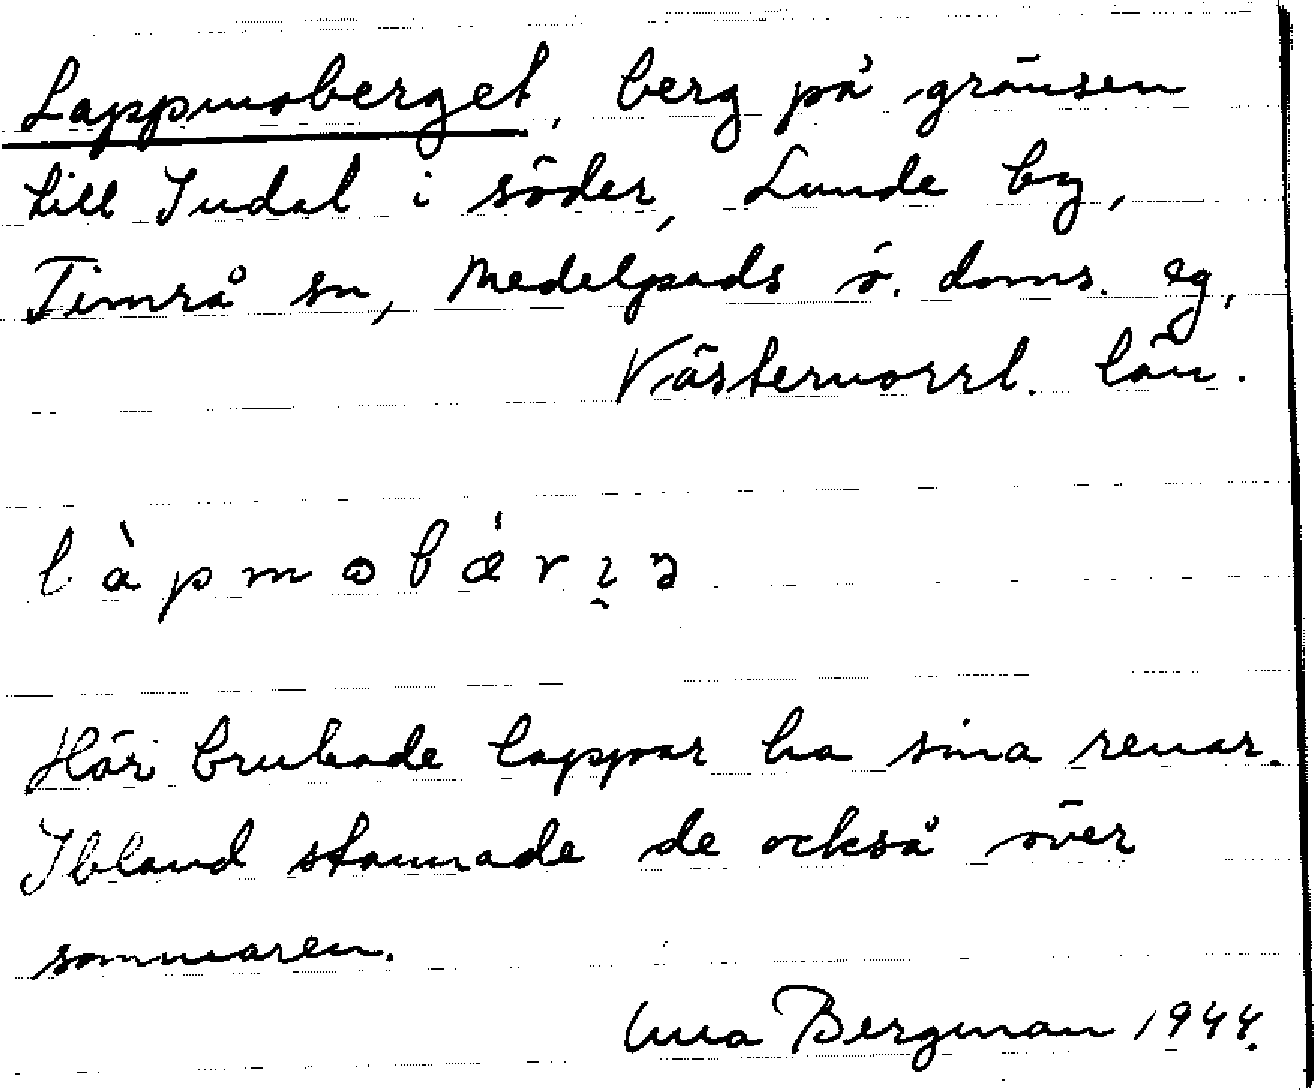 Lappmoberget, berg på gränsen
till Indal i söder, Lunde by,
Timrå sn, Medelpads ö. doms. sg,
Västernorrl. län.
làpmɷbǽrıɂə
Här brukade lappar ha sina renar.
Ibland stannade de också över
sommaren.
Bergman 1944.